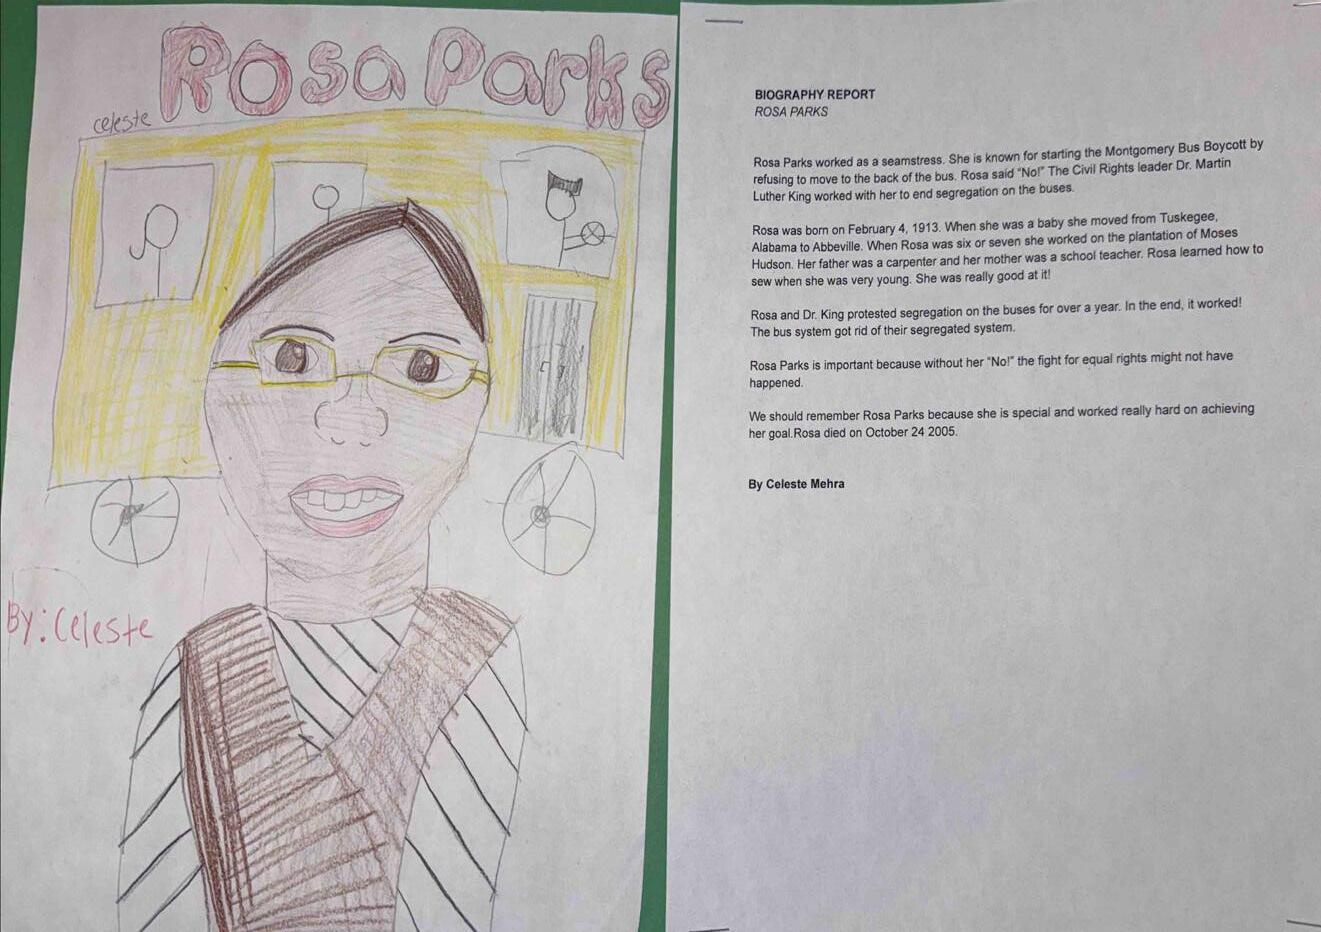 Rosa Parks
celeste
By: Celeste
BIOGRAPHY REPORT
ROSA PARKS
Rosa Parks worked as a seamstress. She is known for starting the Montgomery Bus Boycott by
refusing to move to the back of the bus. Rosa said "No!" The Civil Rights leader Dr. Martin
Luther King worked with her to end segregation on the buses.
Rosa was born on February 4, 1913. When she was a baby she moved from Tuskegee,
Alabama to Abbeville. When Rosa was six or seven she worked on the plantation of Moses
Hudson. Her father was a carpenter and her mother was a school teacher. Rosa learned how to
sew when she was very young. She was really good at it!
Rosa and Dr. King protested segregation on the buses for over a year. In the end, it worked!
The bus system got rid of their segregated system.
Rosa Parks is important because without her "No!" the fight for equal rights might not have
happened.
We should remember Rosa Parks because she is special and worked really hard on achieving
her goal.Rosa died on October 24 2005.
By Celeste Mehra